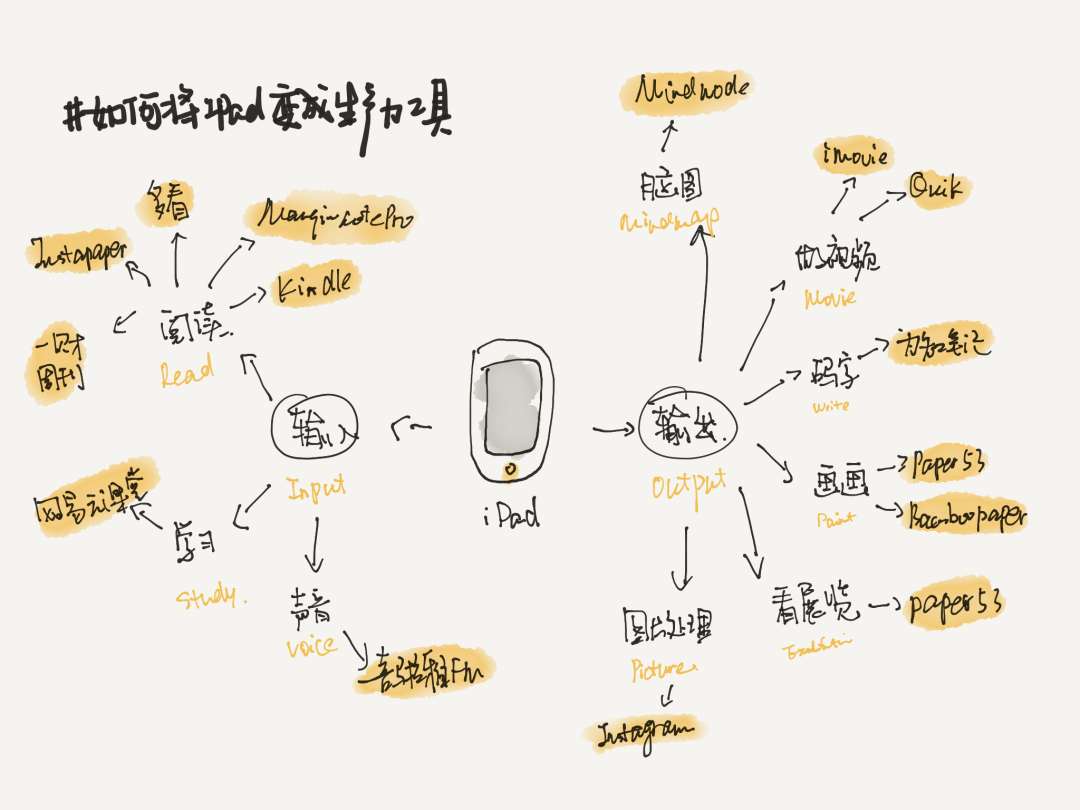 #如何将iPad变成生产力工具
多看
Instapaper
MarginnotePro
Kindle
一网才
周刊
阅读.
Read
输入
Input
网易云课堂
学习
Study.
声音
Voice
喜马拉雅Fm
iPad
Mindnode
脑图
Mindmap
imovie
Quik
做视频
Movie
码字
write
为知笔记
输出.
Output
画画
Paint
Paper53
Bamboopaper
看展览
paper53
图片处理
Picture.
Instagram